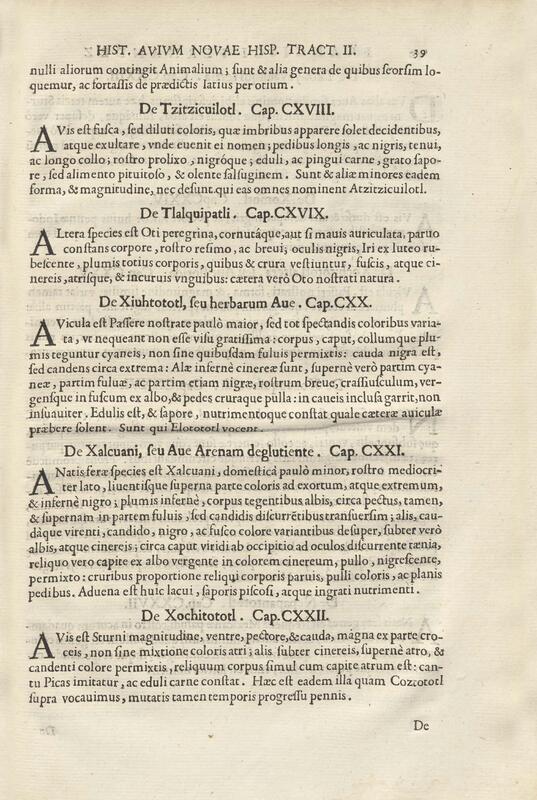 HIST. AVIVM NOVAE HISP. TRACT. II. 39
nulli aliorum contingit Animalium; sunt & alia genera de quibus seorsim lo-
quemur, ac fortassis de prædictis latius per otium.
De Tzitzicuilotl. Cap. CXVIII.
AVis est fusca, sed diluti coloris, quæ imbribus apparere solet decidentibus,
atque exultare, vnde euenit ei nomen; pedibus longis, ac nigris, tenui,
ac longo collo; rostro prolixo, nigróque; eduli, ac pingui carne, grato sapo-
re, sed alimento pituitoso, & olente salsuginem. Sunt & aliæ minores eadem
forma, & magnitudine, nec desunt qui eas omnes nominent Atzitzicuilotl.
De Tlalquipatli. Cap. CXVIX.
ALtera species est Oti peregrina, cornutáque, aut si mauis auriculata, paruo
constans corpore, rostro resimo, ac breui; oculis nigris, Iri ex luteo ru-
bescente, plumis totius corporis, quibus & crura vestiuntur, fuscis, atque ci-
nereis, atrisque, & incuruis vnguibus: cætera verò Oto nostrati natura.
De Xiuhtototl, seu herbarum Aue. Cap. CXX.
AVicula est Passere nostrate paulò maior, sed tot spectandis coloribus varia-
ta, vt nequeant non esse visu gratissima: corpus, caput, collumque plu-
mis teguntur cyaneis, non sine quibusdam fuluis permixtis: cauda nigra est,
sed candens circa extrema: Alæ infernè cinereæ sunt, supernè verò partim cya-
neæ, partim fuluæ, ac partim etiam nigræ, rostrum breue, crassiusculum, ver-
gensque in fuscum ex albo, & pedes cruraque pulla: in caueis inclusa garrit, non
insuauiter. Edulis est, & sapore, nutrimentoque constat quale cæteræ auiculæ
præbere solent. Sunt qui Elotototl vocent.
De Xalcuani, seu Aue Arenam deglutiente. Cap. CXXI.
ANatis feræ species est Xalcuani, domesticâ paulò minor, rostro mediocri-
ter lato, liuentisque superna parte coloris ad exortum, atque extremum,
& infernè nigro; plumis infernè, corpus tegentibus albis, circa pectus, tamen,
& supernam in partem fuluis, sed candidis discurrẽtibus transuersim; alis, cau-
dàque virenti, candido, nigro, ac fusco colore variantibus desuper, subter verò
albis, atque cinereis; circa caput viridi ab occipitio ad oculos discurrente tænia,
reliquo vero capite ex albo vergente in colorem cinereum, pullo, nigrescente,
permixto: cruribus proportione reliqui corporis paruis, pulli coloris, ac planis
pedibus. Aduena est huic lacui, saporis piscosi, atque ingrati nutrimenti.
De Xochitototl. Cap. CXXII.
AVis est Sturni magnitudine, ventre, pectore, & cauda, magna ex parte cro-
ceis, non sine mixtione coloris atri; alis subter cinereis, supernè atro, &
candenti colore permixtis, reliquum corpus simul cum capite atrum est: can-
tu Picas imitatur, ac eduli carne constat. Hæc est eadem illa quam Coztototl
supra vocauimus, mutatis tamen temporis progressu pennis.
De